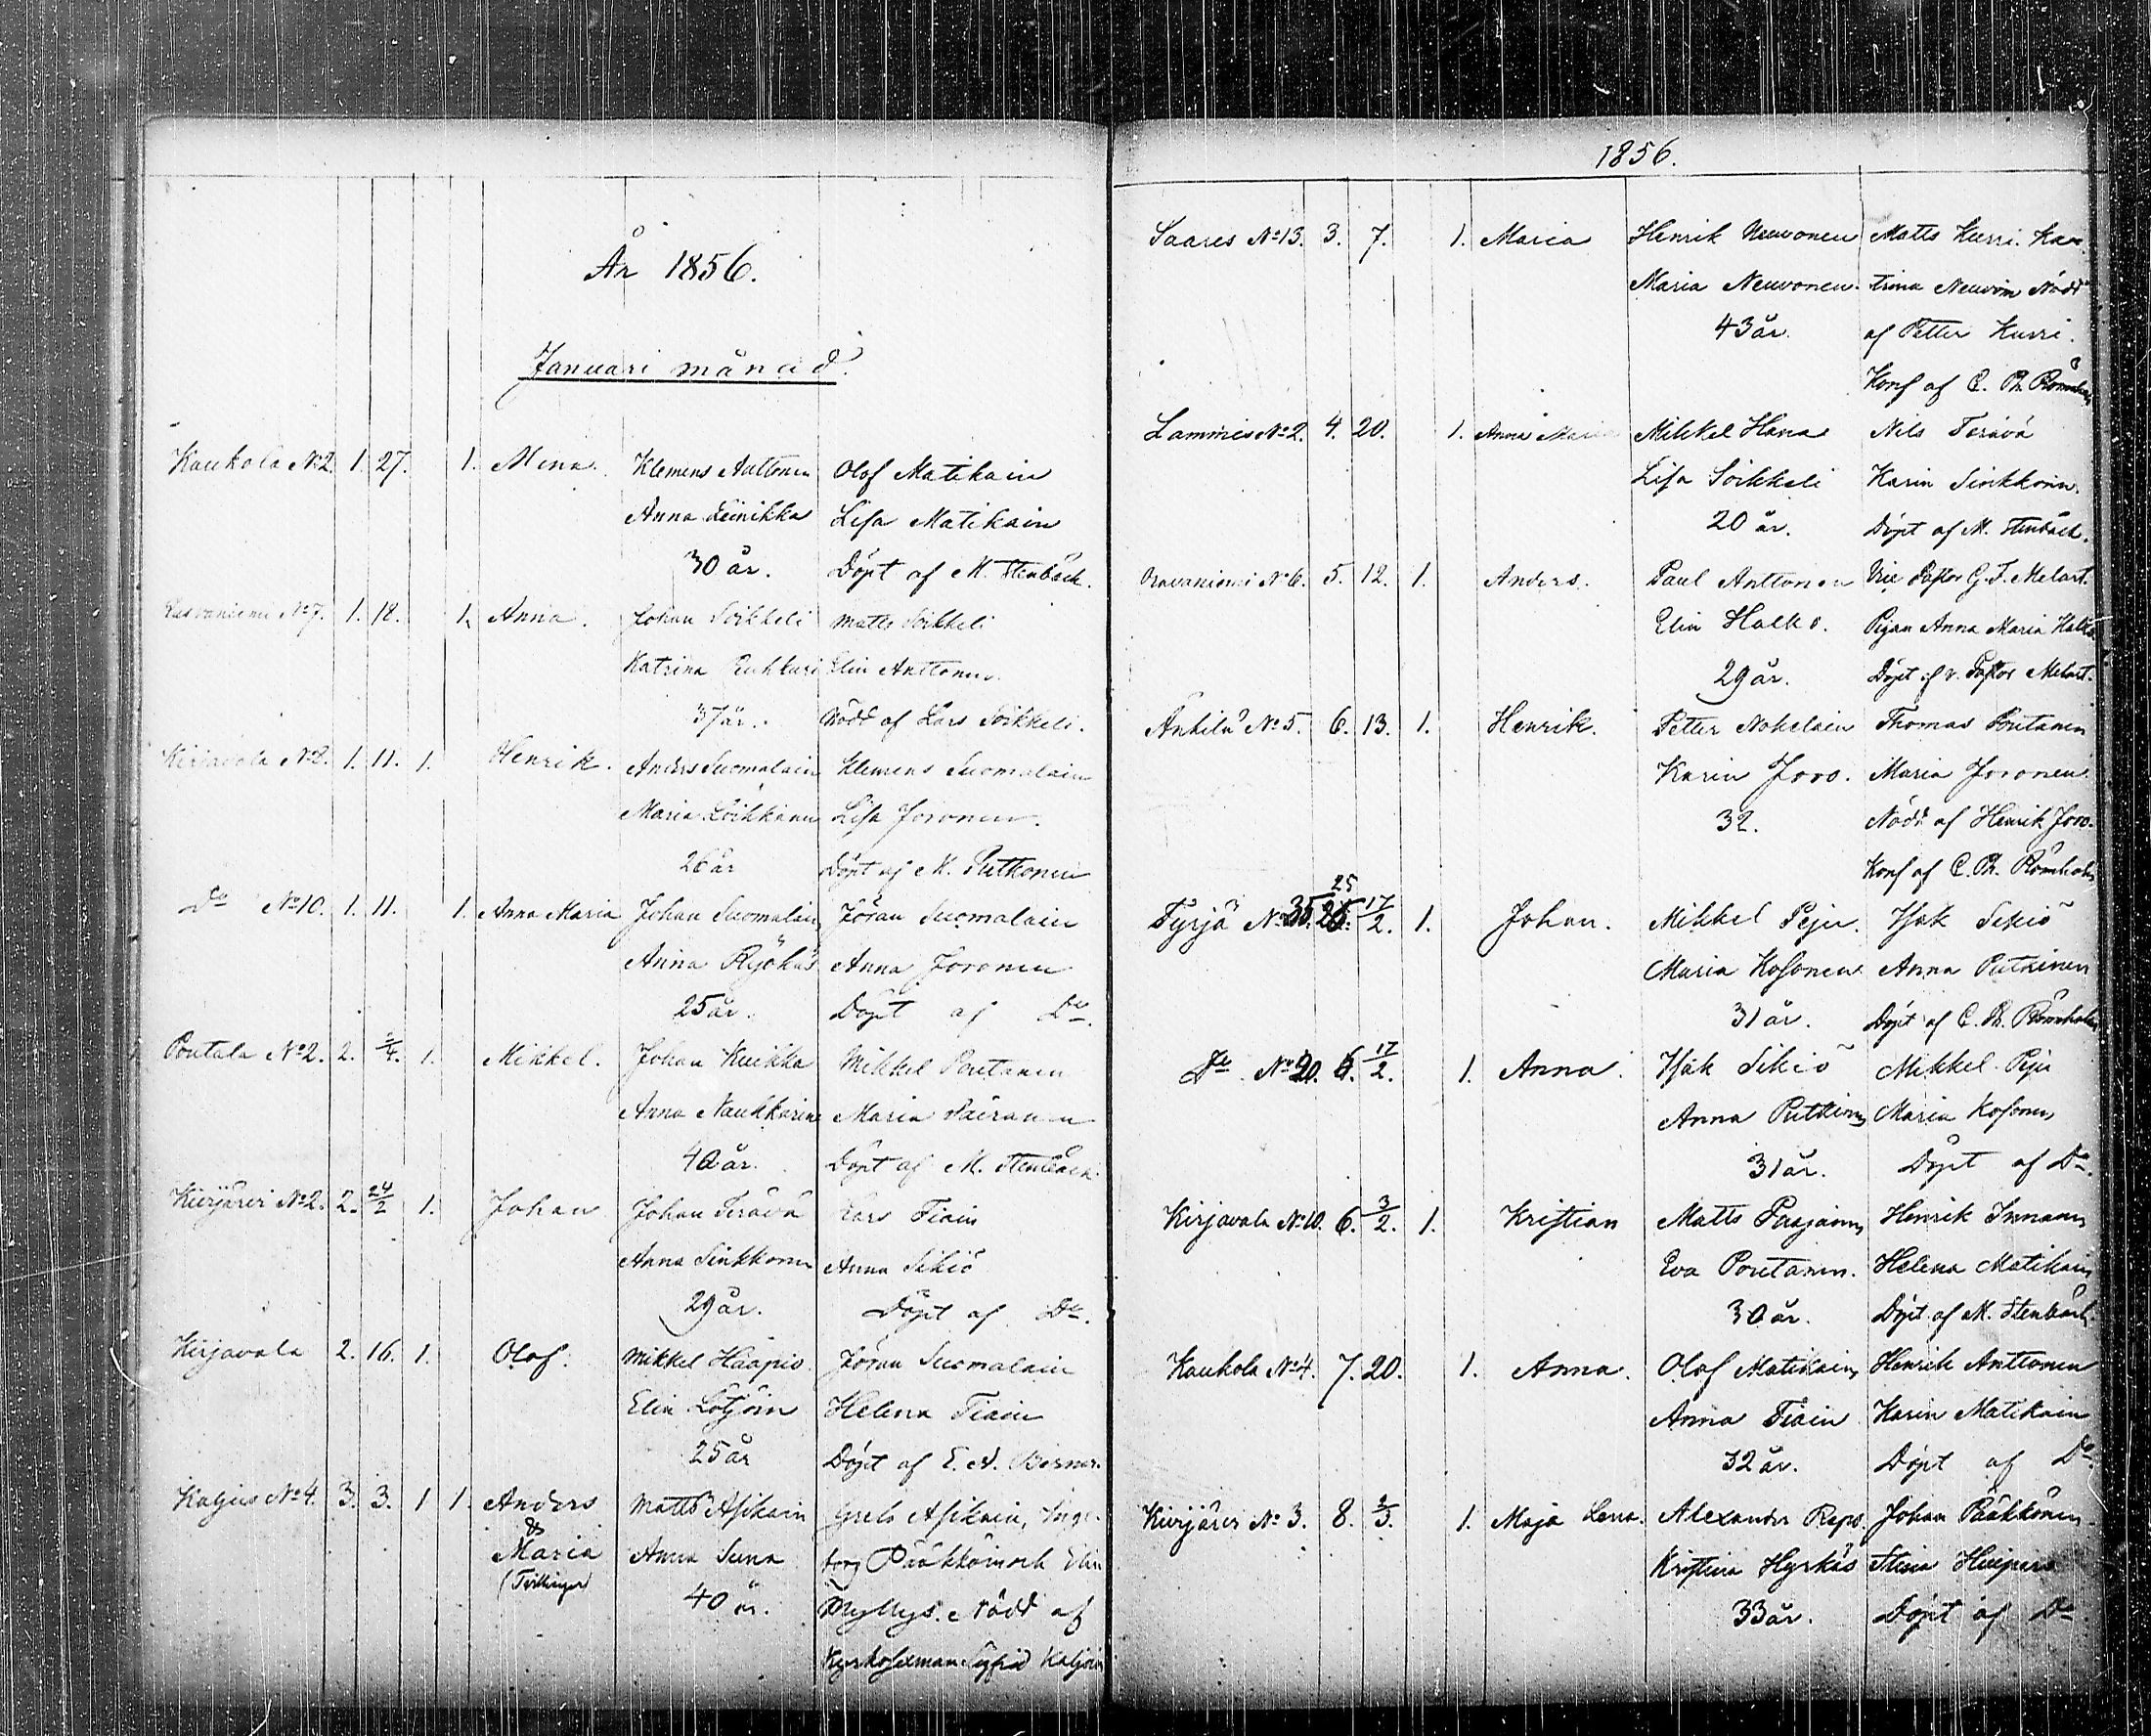 År 1856.
Januari månad.
Kaukola No 2. 1. 27. 1. Mina. Klemens Anttonen Olof Matikain
Anna Leinikka Lisa Matikain
30 år. Döpt af M. Stenbäck.
No 7. 1. 18. 1. Anna. Johan Soikkeli Matts Soikkeli
Katrina Elin Anttonen
37 år. Nödd af Lars Soikkeli.
Kirjavala No 8. 1. 11. 1. Henrik. Anders Suomalain Klemens Suomalain
Maria Lisa Joronen.
26 år Döpt af M. Putkonen
Do No 10. 1. 11. 1. Anna Maria Johan Suomalain Jöran Suomalain
Anna Ryökäs Anna Joronen
25 år. Döpt af Do.
Poutala No 2. 2. 2/4. 1. Mikkel. Johan Kuikka Mikkel Poutanen
Anna Naukkarinen Maria
40 år. Döpt af M. Stenbäck.
Kiurjärvi No 2. 2. 24/2 1. Johan Johan Terävä Lars Tiain
Anna Sinkkonen Anna Sikiö
29 år. Döpt af Do.
Kirjavala 2. 16. 1. Olof. Mikkel Haapio Jöran Suomalain
Elin Lötjöin Helena Tiain
25 år Döpt af E. A.
Kaljus No 4. 3. 3. 1 1. Anders Matts Asikain Grels Asikain, Inge-
& Maria Anna Suna borg Pääkköin och Elin
(Tvillingar) 40 år. Myllys. Nödd af
Kyrkosexman Sigfrid Kaljoin
1856.
Saares No 13. 3. 7. 1. Maria Henrik Neuvonen Matts Kurri. Ka-
Maria Neuvonen. trina Neuvoin Nödd
43 år. af Petter Kurri.
Konf af C. Th.
Lammis No 2. 4. 20. 1. Anna Maria Mikkel Hana Nils Terävä
Lisa Soikkeli Karin Sinkkoin.
20 år. Döpt af M. Stenbäck.
Oravaniemi No 6. 5. 12. 1. Anders. Paul Anttonen Vice Pastor G. F. Melart.
Elin Halko. Pigan Anna Maria Halko
29 år. Döpt af v. Pastor Melart.
Ankilä No 5. 6. 13. 1. Henrik. Petter Nokelain Thomas Poutanen
Karin Joro. Maria Joronen.
32. Nödd af Henrik Joro.
Konf af C. Th.
25
Tyrjä No 35. 17/2. 1. Johan. Mikkel Peju. Isak Sikiö
Maria Kosonen Anna Putkinen
31 år. Döpt af C. Th.
Do No 20. 6. 17/2. 1. Anna. Isak Sikiö Mikkel Peju
Anna Putkinen Maria Kosonen
31 år. Döpt af Do.
Kirjavala No 10. 6. 3/2. 1. Kristian Matts Paajanen Henrik Innanen
Eva Poutanen. Helena Matikain
30 år. Döpt af M. Stenbäck.
Kaukola No 4. 7. 20. 1. Anna. Olof Matikain Henrik Anttonen
Anna Tiain Karin Matikain
32 år. Döpt af Do.
Kiurjärvi No 3. 8. 2/3. 1. Maja Lena. Alexander Repo. Johan Pääkkönen
Kristina Hyrkäs Stina
33 år. Döpt af Do